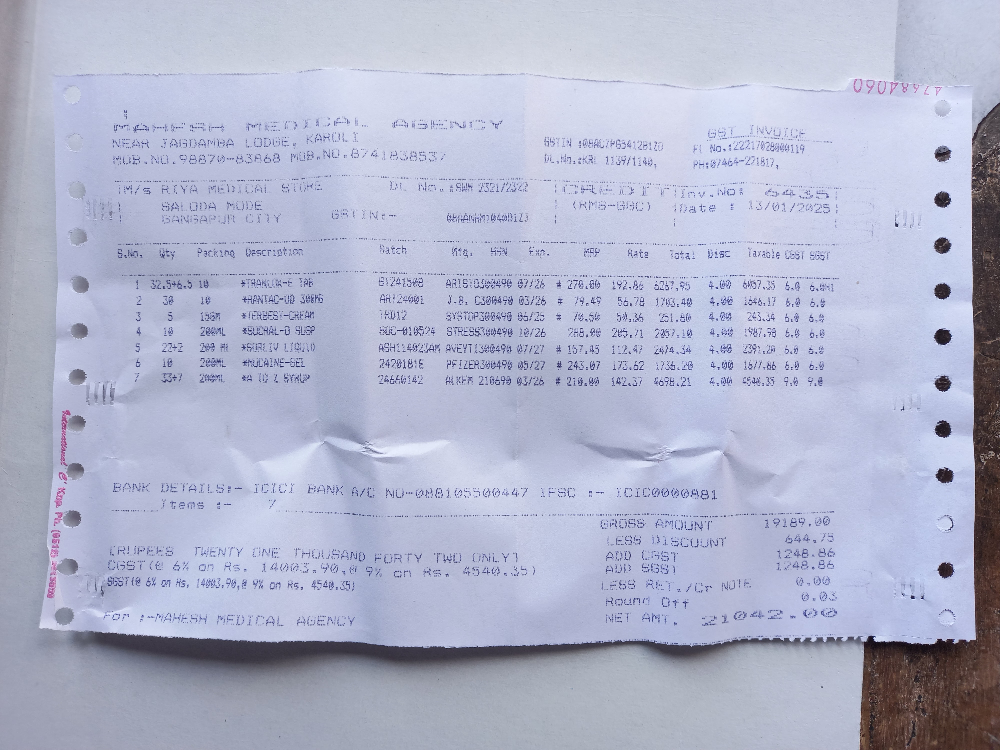 47684060
MAHESH MEDICAL AGENCY
NEAR JAGDAMBA LODGE, KAROLI
MOB.NO.98870-83868 MOB.NO.8741838537
GST INVOICE
GSTIN :08AC7PG5412B1ZD FL No.:22217028000119
DL.No.:KRL 1139/1140, PH:07464-221817,
M/s RIYA MEDICAL STORE DL No.:SWM 2321/2322 CREDIT Inv.No: 6435
SALODA MODE (RMS-GGC) Date : 13/01/2025
GANGAPUR CITY GSTIN:-
S.No. Qty Packing Description Batch Mfg. HSN Exp. MRP Rate Total Disc Taxable CGST SGST
1 32.5+6.5 10 *TRANLOK-E TAB ARIS 300490 07/26 # 270.00 192.86 6267.95 4.00 6.0
2 30 10 *RANTAC-OD 300MG J.B. C300490 03/26 # 79.49 56.78 1703.40 4.00 1646.17 6.0 6.0
3 5 15GM *TERBEST-CREAM TRD12 SYSTOP300490 06/25 # 70.50 50.36 251.80 4.00 243.34 6.0 6.0
4 10 200ML *SUCRAL-O SUSP SOC-010524 STRESS300490 10/26 288.00 205.71 2057.10 4.00 1987.98 6.0 6.0
5 22+2 200 Ml LIQUID AVEYTI300490 07/27 # 157.45 112.47 2474.34 4.00 2391.20 6.0 6.0
6 10 200ML *MUCAINE-GEL 24201818 PFIZER300490 05/27 # 243.07 173.62 1736.20 4.00 1677.86 6.0 6.0
7 33+7 200ML *A TO Z SYRUP 24650142 ALKEM 210690 03/26 # 210.00 142.37 4698.21 4.00 4540.35 9.0 9.0
International 'C' Kota Ph.
BANK DETAILS:- ICICI BANK A/C NO-088105500447 IFSC :- ICIC0000881
Items :- 7
GROSS AMOUNT 19189.00
LESS DISCOUNT 644.75
ADD CGST 1248.86
ADD SGST 1248.86
LESS RET./Cr NOTE 0.00
Round Off 0.03
NET AMT. 21042.00
[RUPEES TWENTY ONE THOUSAND FORTY TWO ONLY]
CGST(@ 6% on Rs. 14003.90,@ 9% on Rs. 4540.35)
SGST(@ 6% on Rs. 14003.90,@ 9% on Rs. 4540.35)
For :-MAHESH MEDICAL AGENCY